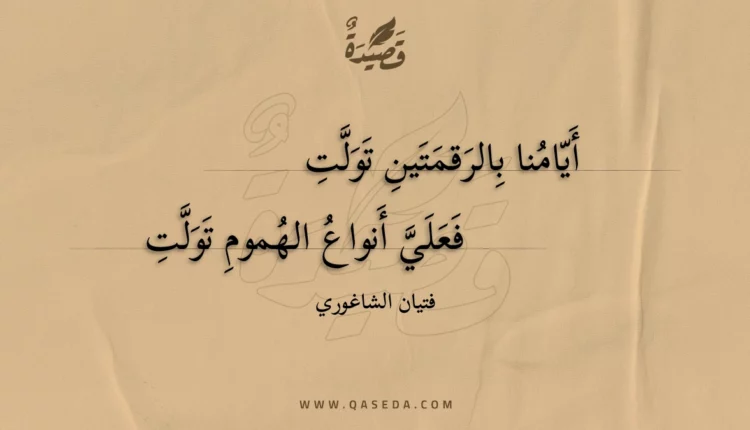 قَصِيدَةٌ
أَيّامُنا بِالرَقمَتَينِ تَوَلَّتِ
فَعَلَيَّ أَنواعُ الهُمومِ تَوَلَّتِ
فتيان الشاغوري
WWW.QASEDA.COM